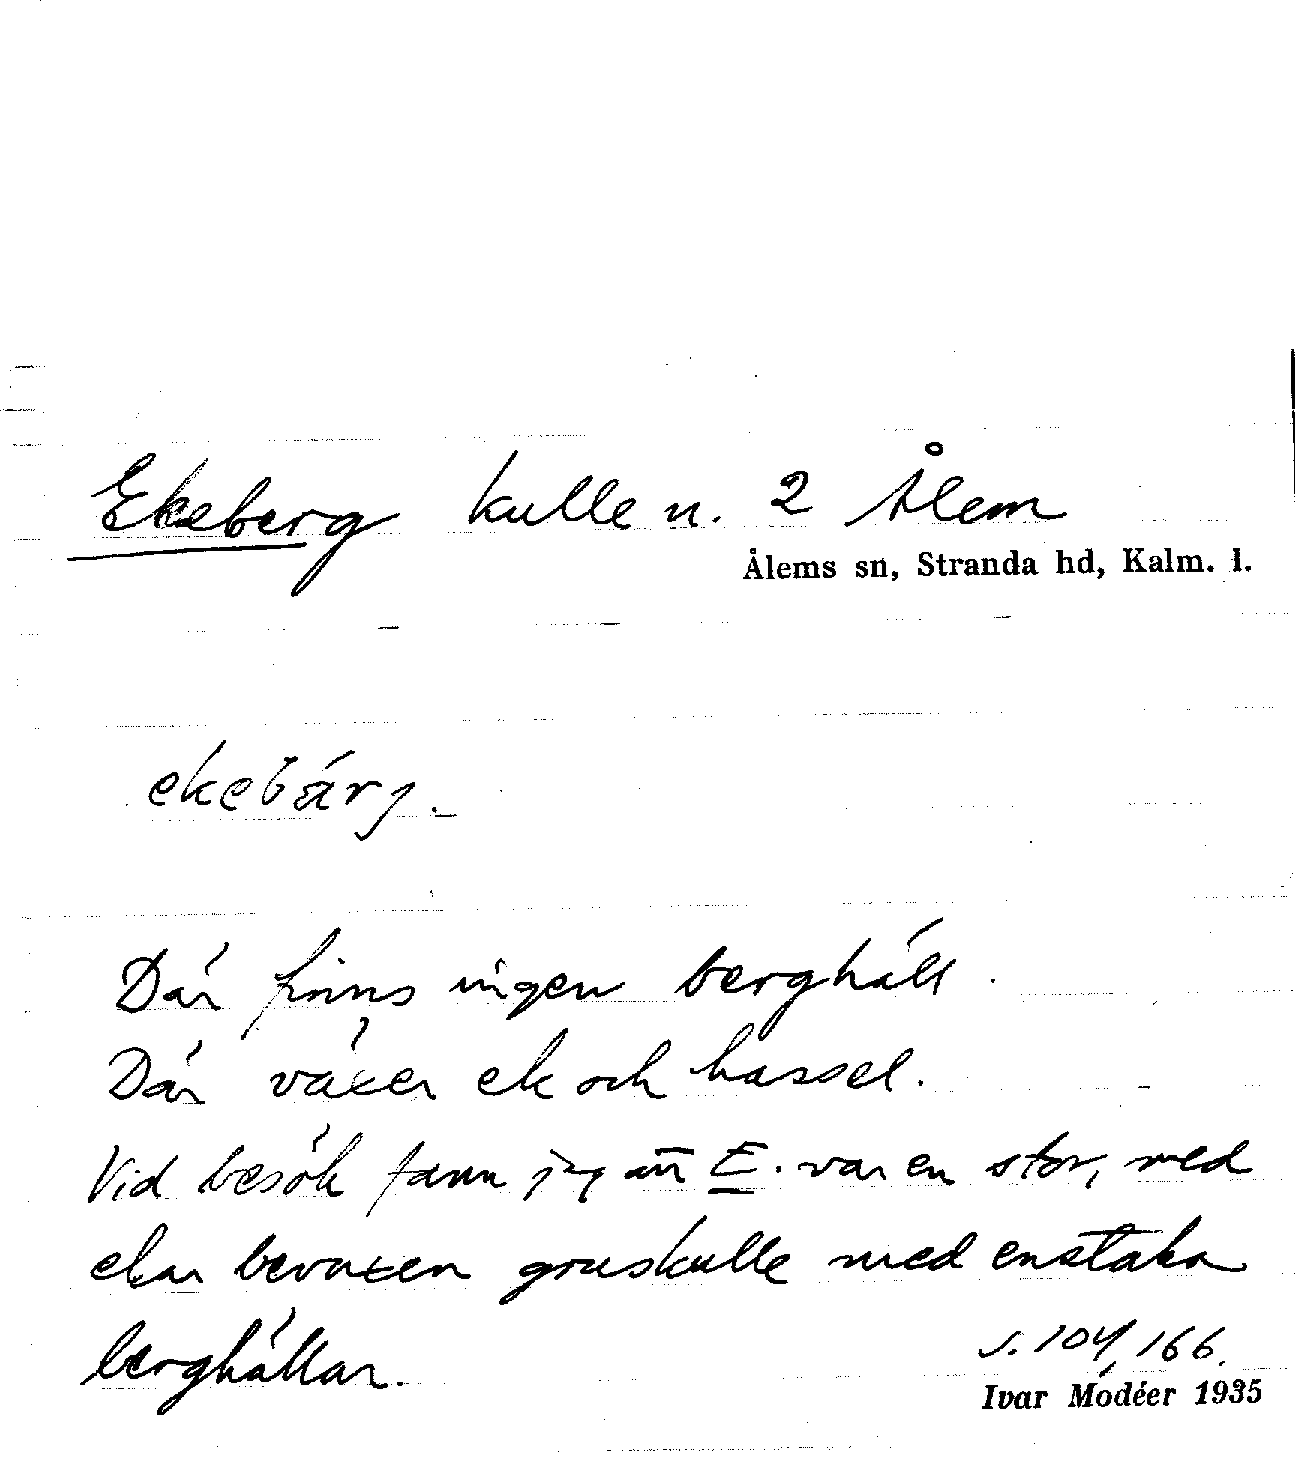 Ekeberg kulle n. 2 Ålem
Ålems sn, Stranda hd, Kalm. l.
ekebärj.
Där finns ingen berghäll.
Där växer ek och hassel.
Vid besök fann jag att E. var en stor, med
ekar bevuxen gruskulle med enstaka
berghällar.
s. 104, 166.
Ivar Modéer 1935